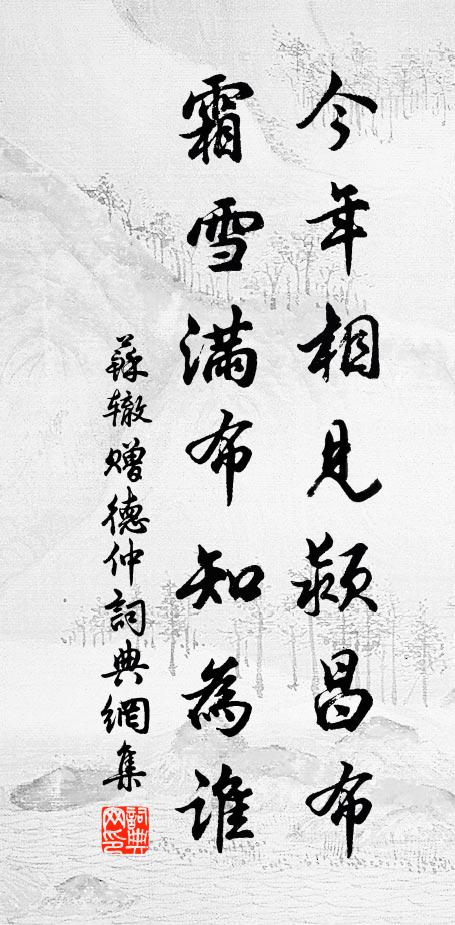 今年相見潁昌布
霜雪滿布知為誰
蘇辙赠德仲詞典網集
詞典网印